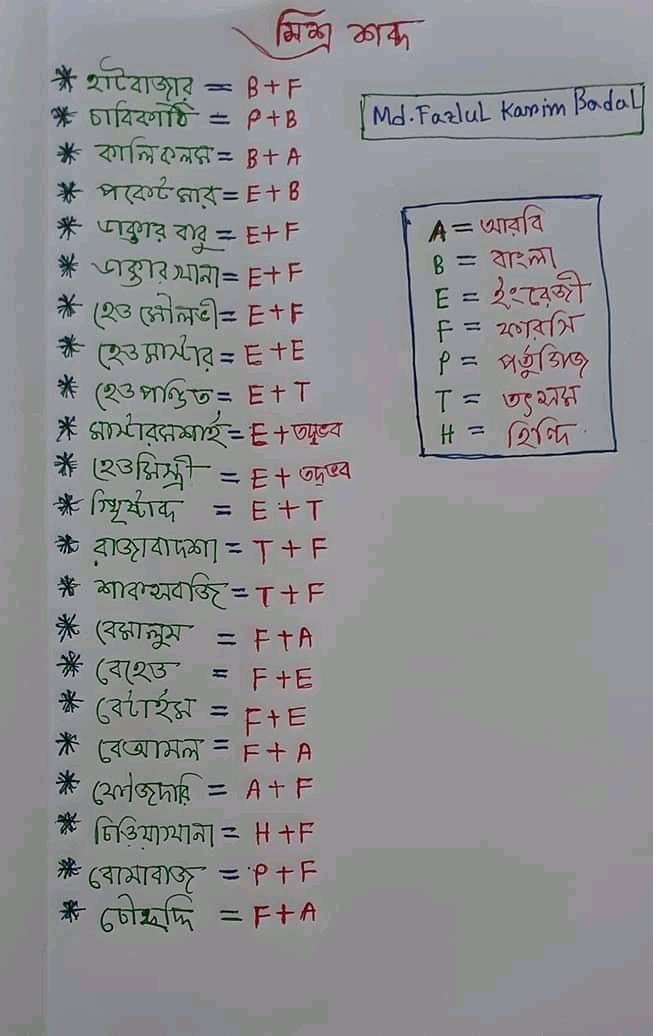 মিশ্র শব্দ
* হাটবাজার = B + F
* চাবিকাঠি = P + B
* কালিকলম = B + A
* পকেটমার = E + B
* ডাক্তার বাবু = E + F
* ডাক্তারখানা = E + F
* হেড মৌলভী = E + F
* হেডমাস্টার = E + E
* হেডপণ্ডিত = E + T
* মাস্টারমশাই = E + তদ্ভব
* হেডমিস্ত্রী = E + তদ্ভব
* খ্রিষ্টাব্দ = E + T
* রাজাবাদশা = T + F
* শাকসবজি = T + F
* বেমালুম = F + A
* বেহেড = F + E
* বেটাইম = F + E
* বেআমল = F + A
* ফৌজদারি = A + F
* চিড়িয়াখানা = H + F
* বোমাবাজ = P + F
* চৌহদ্দি = F + A
Md. Fazlul Karim Badal
A = আরবি
B = বাংলা
E = ইংরেজী
F = ফারসি
P = পর্তুগিজ
T = তৎসম
H = হিন্দি